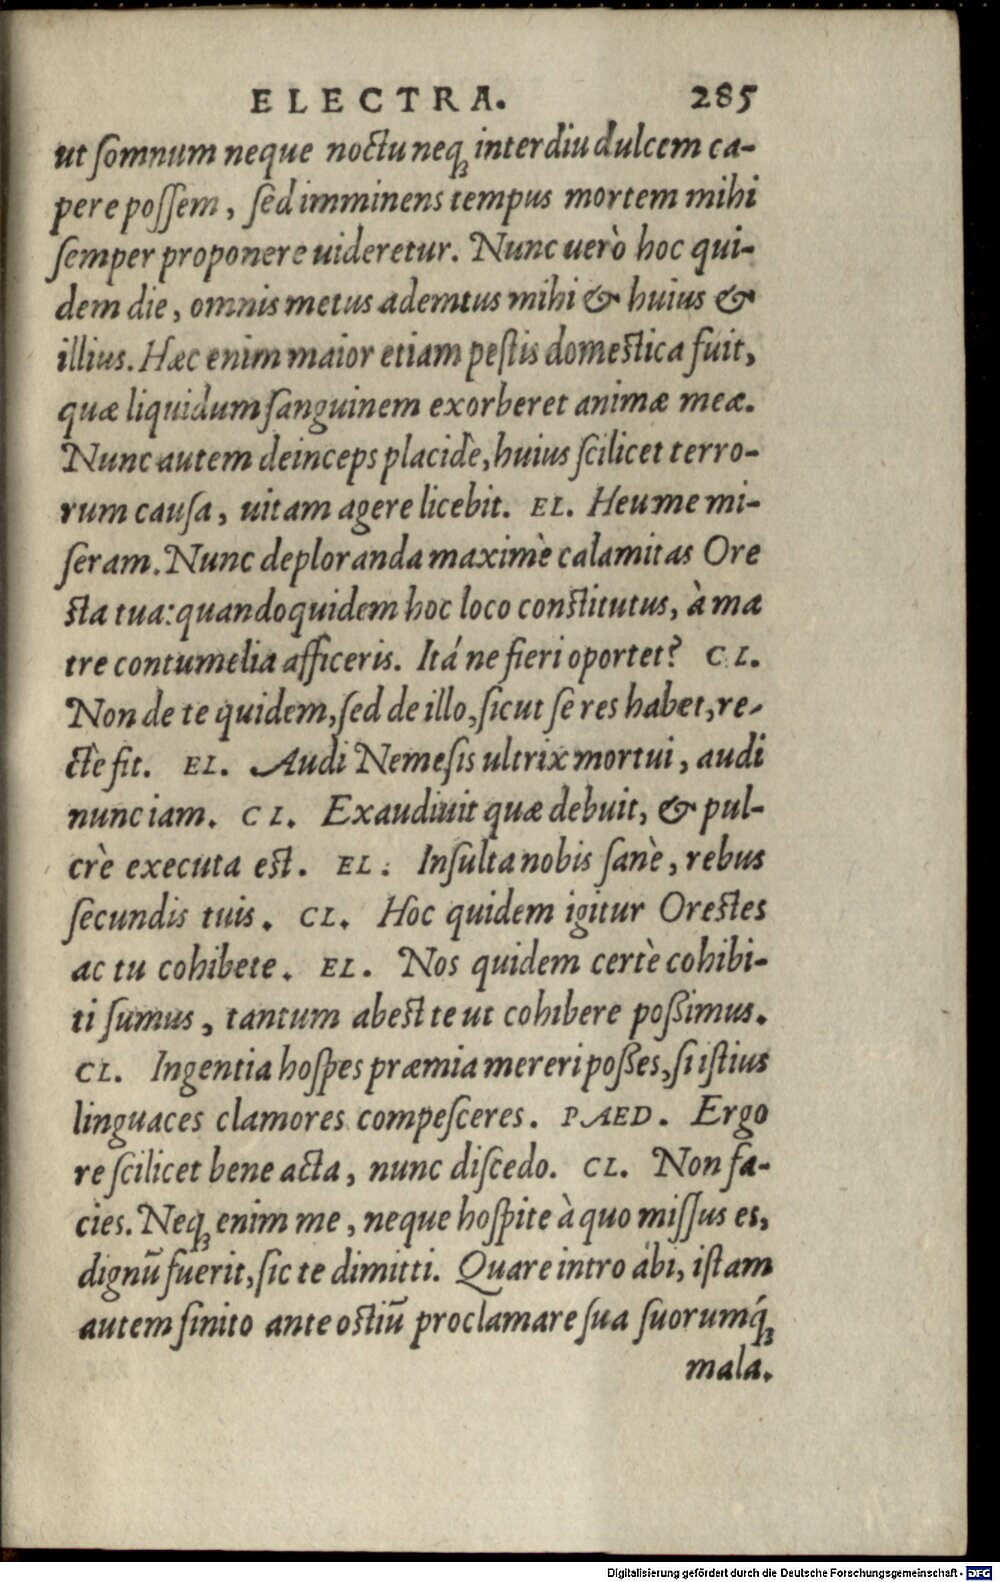 ELECTRA. 285
ut ſomnum neque noctu neq́ue interdiu dulcem ca-
pere poſſem, ſed imminens tempus mortem mihi
ſemper proponere uideretur. Nunc uerò hoc qui-
dem die, omnis metus ademtus mihi & huius &
illius. Hæc enim maior etiam peſtis domeſtica fuit,
quæ liquidum ſanguinem exorberet animæ meæ.
Nunc autem deinceps placidè, huius ſcilicet terro-
rum cauſa, uitam agere licebit. EL. Heu me mi-
ſeram. Nunc deploranda maximè calamitas Ore
ſta tua: quandoquidem hoc loco conſtitutus, à ma
tre contumelia afficeris. Itá ne fieri oportet? CL.
Non de te quidem, ſed de illo, ſicut ſe res habet, re-
ctè fit. EL. Audi Nemeſis ultrix mortui, audi
nunc iam. CL. Exaudiuit quæ debuit, & pul-
crè executa eſt. EL. Inſulta nobis ſanè, rebus
ſecundis tuis. CL. Hoc quidem igitur Oreſtes
ac tu cohibete. EL. Nos quidem certè cohibi-
ti ſumus, tantum abeſt te ut cohibere poßimus.
CL. Ingentia hoſpes præmia mereri poßes, ſi iſtius
linguaces clamores compeſceres. PAED. Ergo
re ſcilicet bene acta, nunc diſcedo. CL. Non fa-
cies. Neqꝫ enim me, neque hoſpite à quo miſſus es,
dignũ fuerit, ſic te dimitti. Quare intro abi, iſtam
autem ſinito ante oſtiũ proclamare ſua ſuorumq́ꝫ
mala.
Digitalisierung gefördert durch die Deutsche Forschungsgemeinschaft - DFG